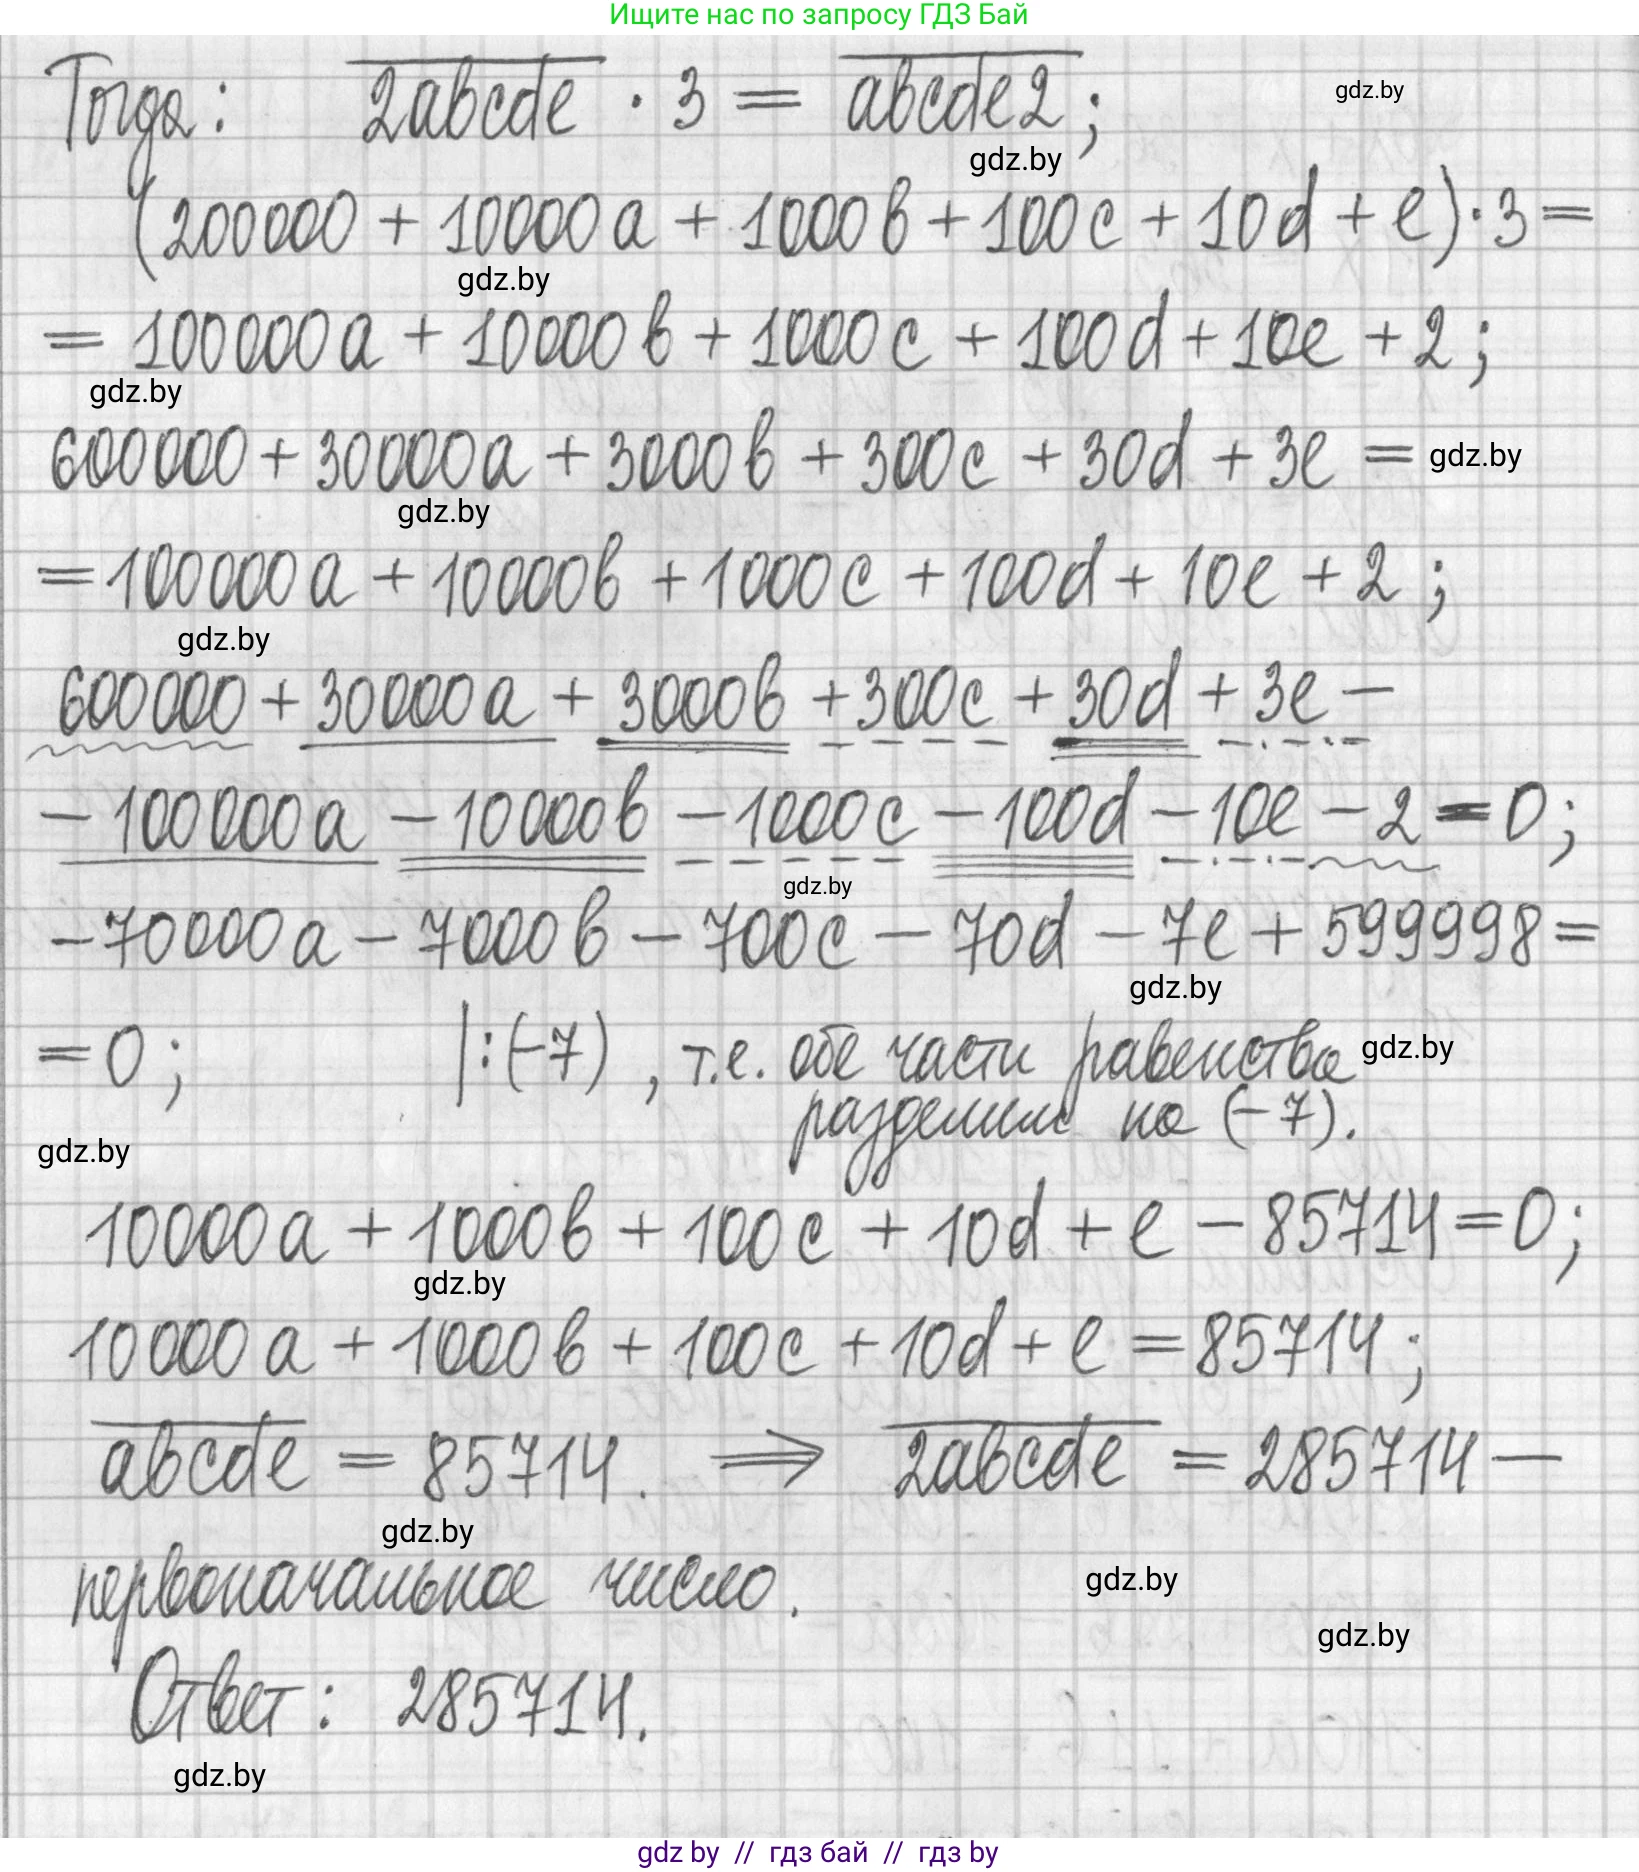 Ищите нас по запросу ГДЗ Бай
Тогда: 2abcde · 3 = abcde2;
gdz.by
gdz.by
(200000 + 10000a + 1000b + 100c + 10d + e) · 3 =
gdz.by
= 100000a + 10000b + 1000c + 100d + 10e + 2;
gdz.by
600000 + 30000a + 3000b + 300c + 30d + 3e =
gdz.by
gdz.by
= 100000a + 10000b + 1000c + 100d + 10e + 2;
gdz.by
600000 + 30000a + 3000b + 300c + 30d + 3e −
− 100000a − 10000b − 1000c − 100d − 10e − 2 = 0;
gdz.by
− 70000a − 7000b − 700c − 70d − 7e + 599998 =
gdz.by
= 0; | : (−7) , т.е. обе части равенства
gdz.by
разделим на (−7).
gdz.by
10000a + 1000b + 100c + 10d + e − 85714 = 0;
gdz.by
10000a + 1000b + 100c + 10d + e = 85714;
abcde = 85714. ⇒ 2abcde = 285714 —
gdz.by
первоначальное число.
gdz.by
gdz.by
Ответ: 285714.
gdz.by
gdz by // гдз бай // гдз by